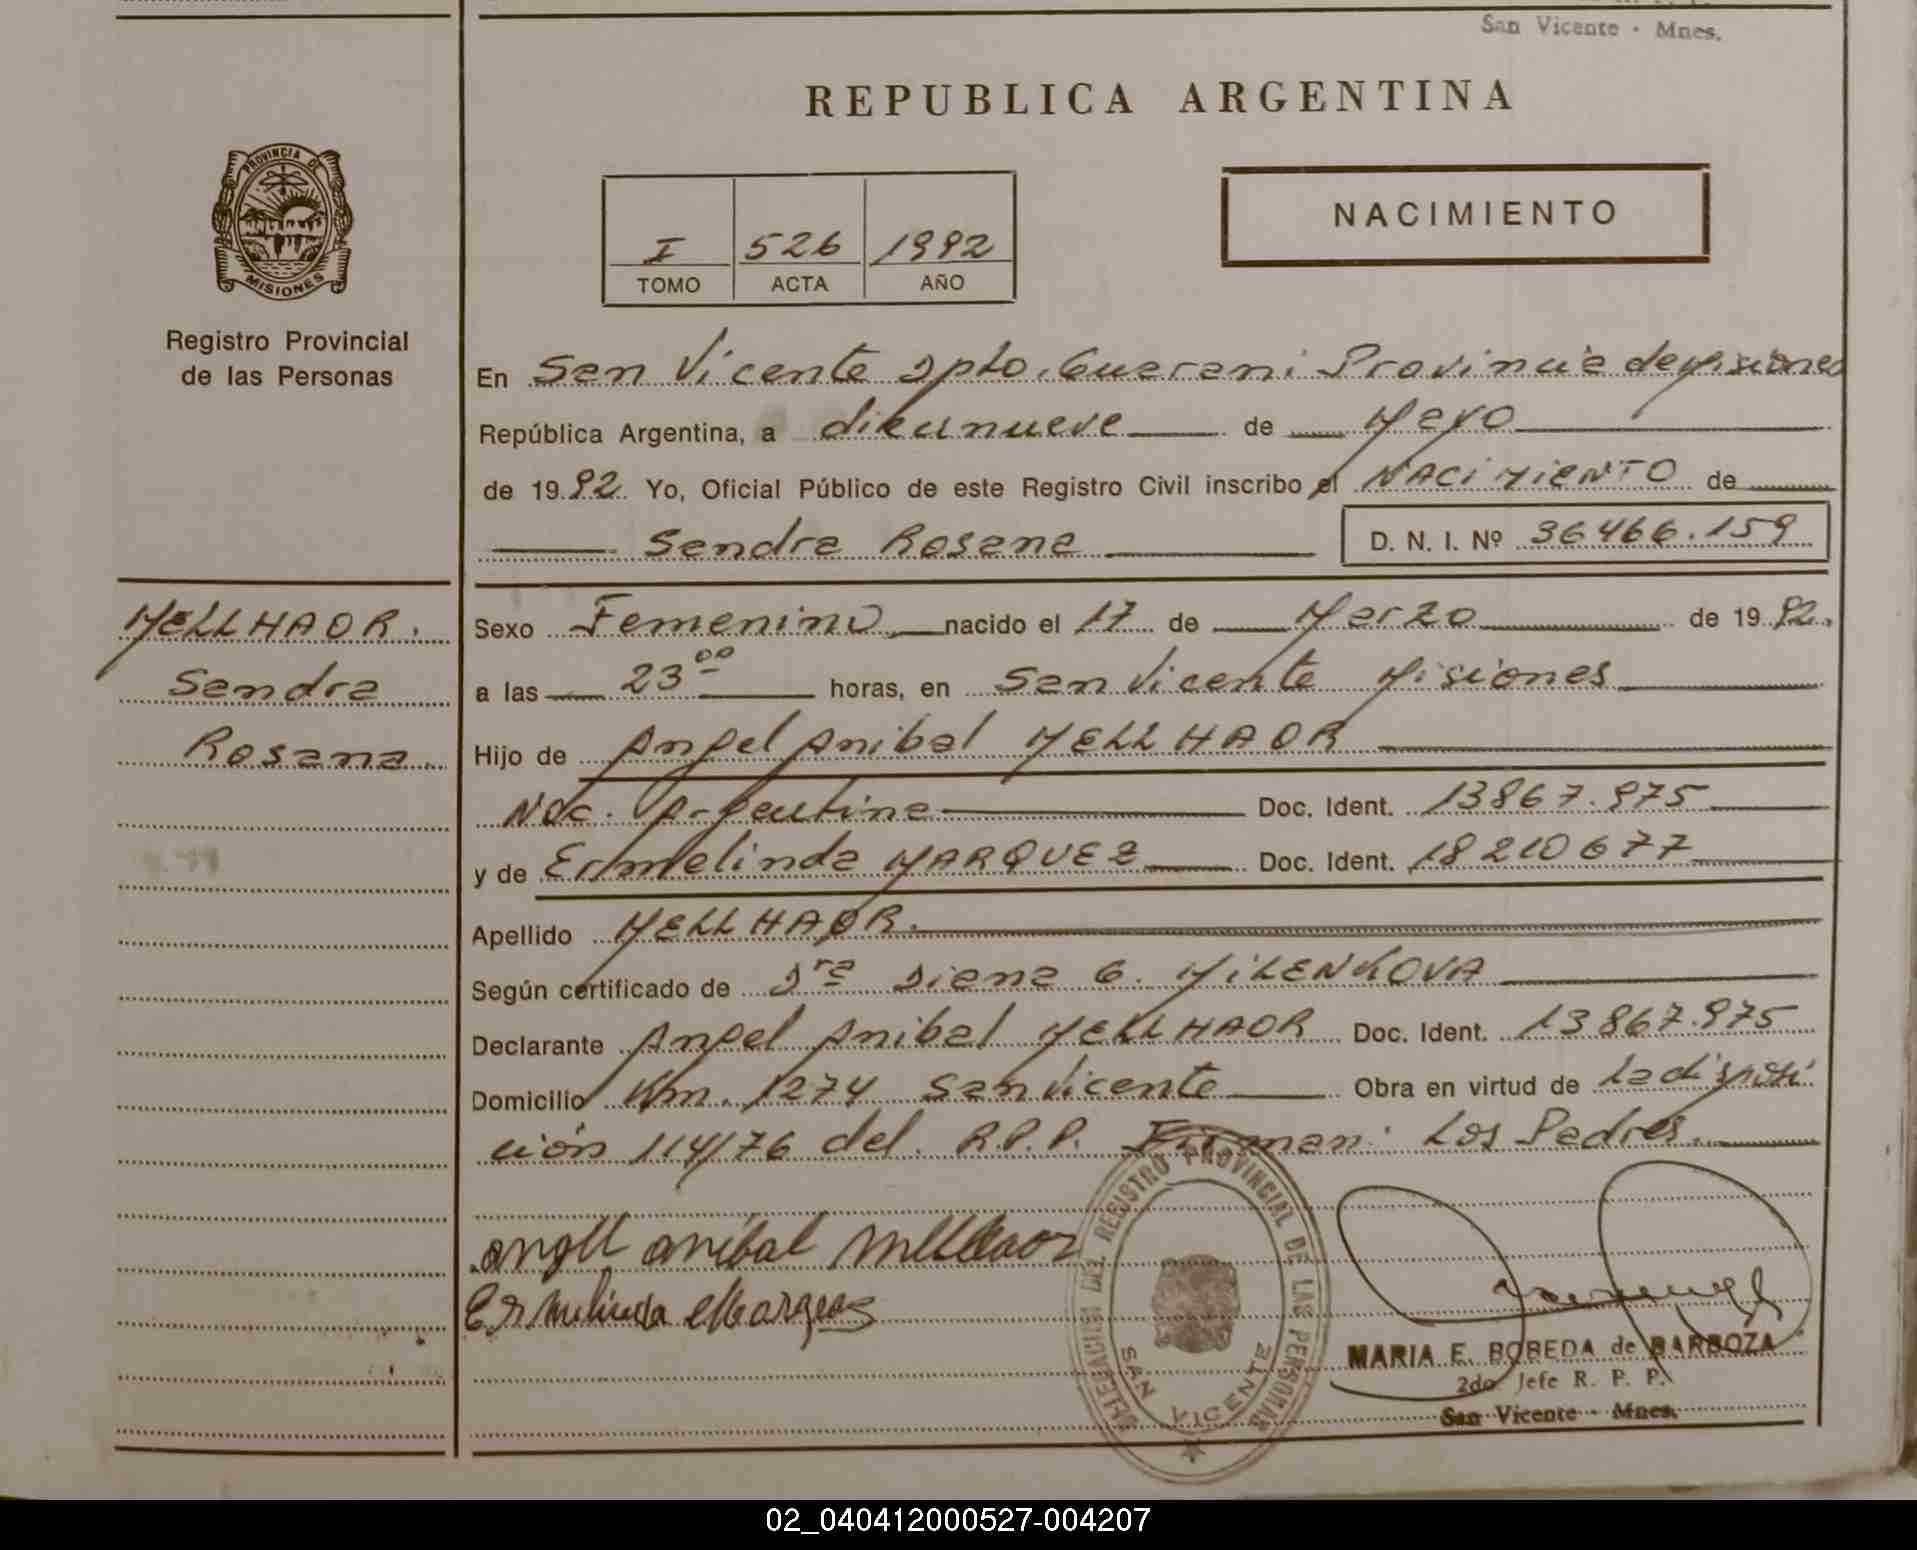 San Vicente - Mnes.
REPUBLICA ARGENTINA
PROVINCIA DE
MISIONES
Registro Provincial
de las Personas
NACIMIENTO
I 526 1992
TOMO ACTA AÑO
En San Vicente Dpto. Guarani Provincia de Misiones
República Argentina, a diecinueve de Mayo
de 1992 Yo, Oficial Público de este Registro Civil inscribo el NACIMIENTO de
Sandra Rosana D. N. I. Nº 36466.159
MELLHAOR.
Sandra
Rosana.
Sexo Femenino nacido el 17 de Marzo de 1992.
a las 23 00 horas, en San Vicente Misiones
Hijo de Angel Anibal MELLHAOR
Nac. Argentina Doc. Ident. 13867.975
y de Ermelinda MARQUEZ Doc. Ident. 18210677
Apellido MELLHAOR.
Según certificado de Dra Diana G. MILENKOVA
Declarante Angel Anibal MELLHAOR Doc. Ident. 13867.975
Domicilio Km. 1274 San Vicente Obra en virtud de La disposi
ción 114/76 del R.P.P. Firman: Los Padres.
angel anibal mellhaor
Ermelinda Marquez
DELEGACION DEL REGISTRO PROVINCIAL DE LAS PERSONAS
SAN VICENTE
MARIA E. BOBEDA de BARBOZA
2do. Jefe R. P. P.
San Vicente - Mnes.
02_040412000527-004207